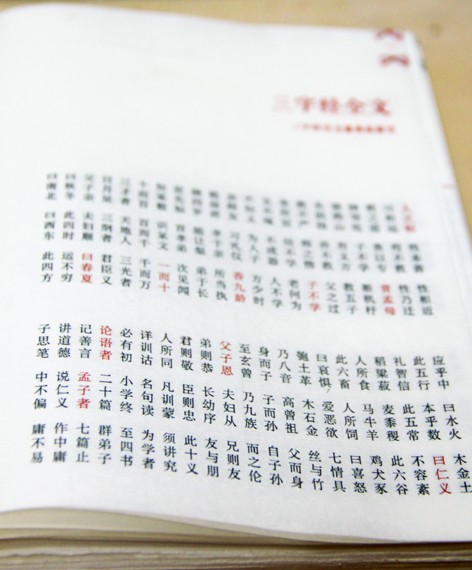 三字经全文
人之初 性本善 性相近
习相远 苟不教 性乃迁
教之道 贵以专 昔孟母
择邻处 子不学 断机杼
窦燕山 有义方 教五子
名俱扬 养不教 父之过
教不严 师之惰 子不学
非所宜 幼不学 老何为
玉不琢 不成器 人不学
不知义 为人子 方少时
亲师友 习礼仪 香九龄
能温席 孝于亲 所当执
融四岁 能让梨 弟于长
宜先知 首孝弟 次见闻
知某数 识某文 一而十
十而百 百而千 千而万
三才者 天地人 三光者
日月星 三纲者 君臣义
父子亲 夫妇顺 曰春夏
曰秋冬 此四时 运不穷
曰南北 曰西东 此四方
应乎中 曰水火 木金土
此五行 本乎数 曰仁义
礼智信 此五常 不容紊
稻粱菽 麦黍稷 此六谷
人所食 马牛羊 鸡犬豕
此六畜 人所饲 曰喜怒
曰哀惧 爱恶欲 七情具
匏土革 木石金 丝与竹
乃八音 高曾祖 父而身
身而子 子而孙 自子孙
至玄曾 乃九族 而之伦
父子恩 夫妇从 兄则友
弟则恭 长幼序 友与朋
君则敬 臣则忠 此十义
人所同 凡训蒙 须讲究
详训诂 名句读 为学者
必有初 小学终 至四书
论语者 二十篇 群弟子
记善言 孟子者 七篇止
讲道德 说仁义 作中庸
子思笔 中不偏 庸不易